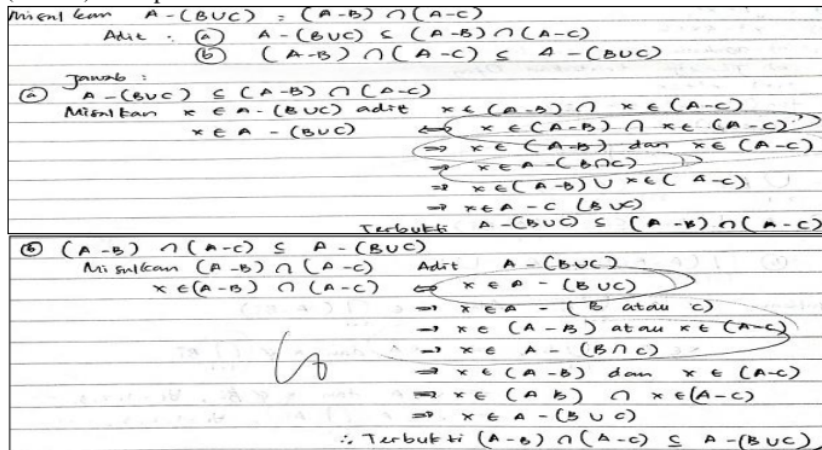 Misal kan A - (B∪C) = (A-B) ∩ (A-C)
Adit : ⓐ A - (B∪C) ⊆ (A-B) ∩ (A-C)
ⓑ (A-B) ∩ (A-C) ⊆ A - (B∪C)
Jawab :
ⓐ A - (B∪C) ⊆ (A-B) ∩ (A-C)
Misalkan x ∈ A - (B∪C) adit x ∈ (A-B) ∩ x ∈ (A-C)
x ∈ A - (B∪C) ⇔ x ∈ (A-B) ∩ x ∈ (A-C)
⇒ x ∈ (A-B) dan x ∈ (A-C)
⇒ x ∈ A - (B∩C)
⇒ x ∈ (A-B) ∪ x ∈ (A-C)
⇒ x ∈ A - C (B∪C)
Terbukti A - (B∪C) ⊆ (A-B) ∩ (A-C)
ⓑ (A-B) ∩ (A-C) ⊆ A - (B∪C)
Misalkan (A-B) ∩ (A-C) Adit A - (B∪C)
x ∈ (A-B) ∩ (A-C) ⇔ x ∈ A - (B∪C)
⇒ x ∈ A - (B atau C)
⇒ x ∈ (A-B) atau x ∈ (A-C)
⇒ x ∈ A - (B∩C)
⇒ x ∈ (A-B) dan x ∈ (A-C)
⇒ x ∈ (A B) ∩ x ∈ (A-C)
⇒ x ∈ A - (B∪C)
∴ Terbukti (A-B) ∩ (A-C) ⊆ A - (B∪C)